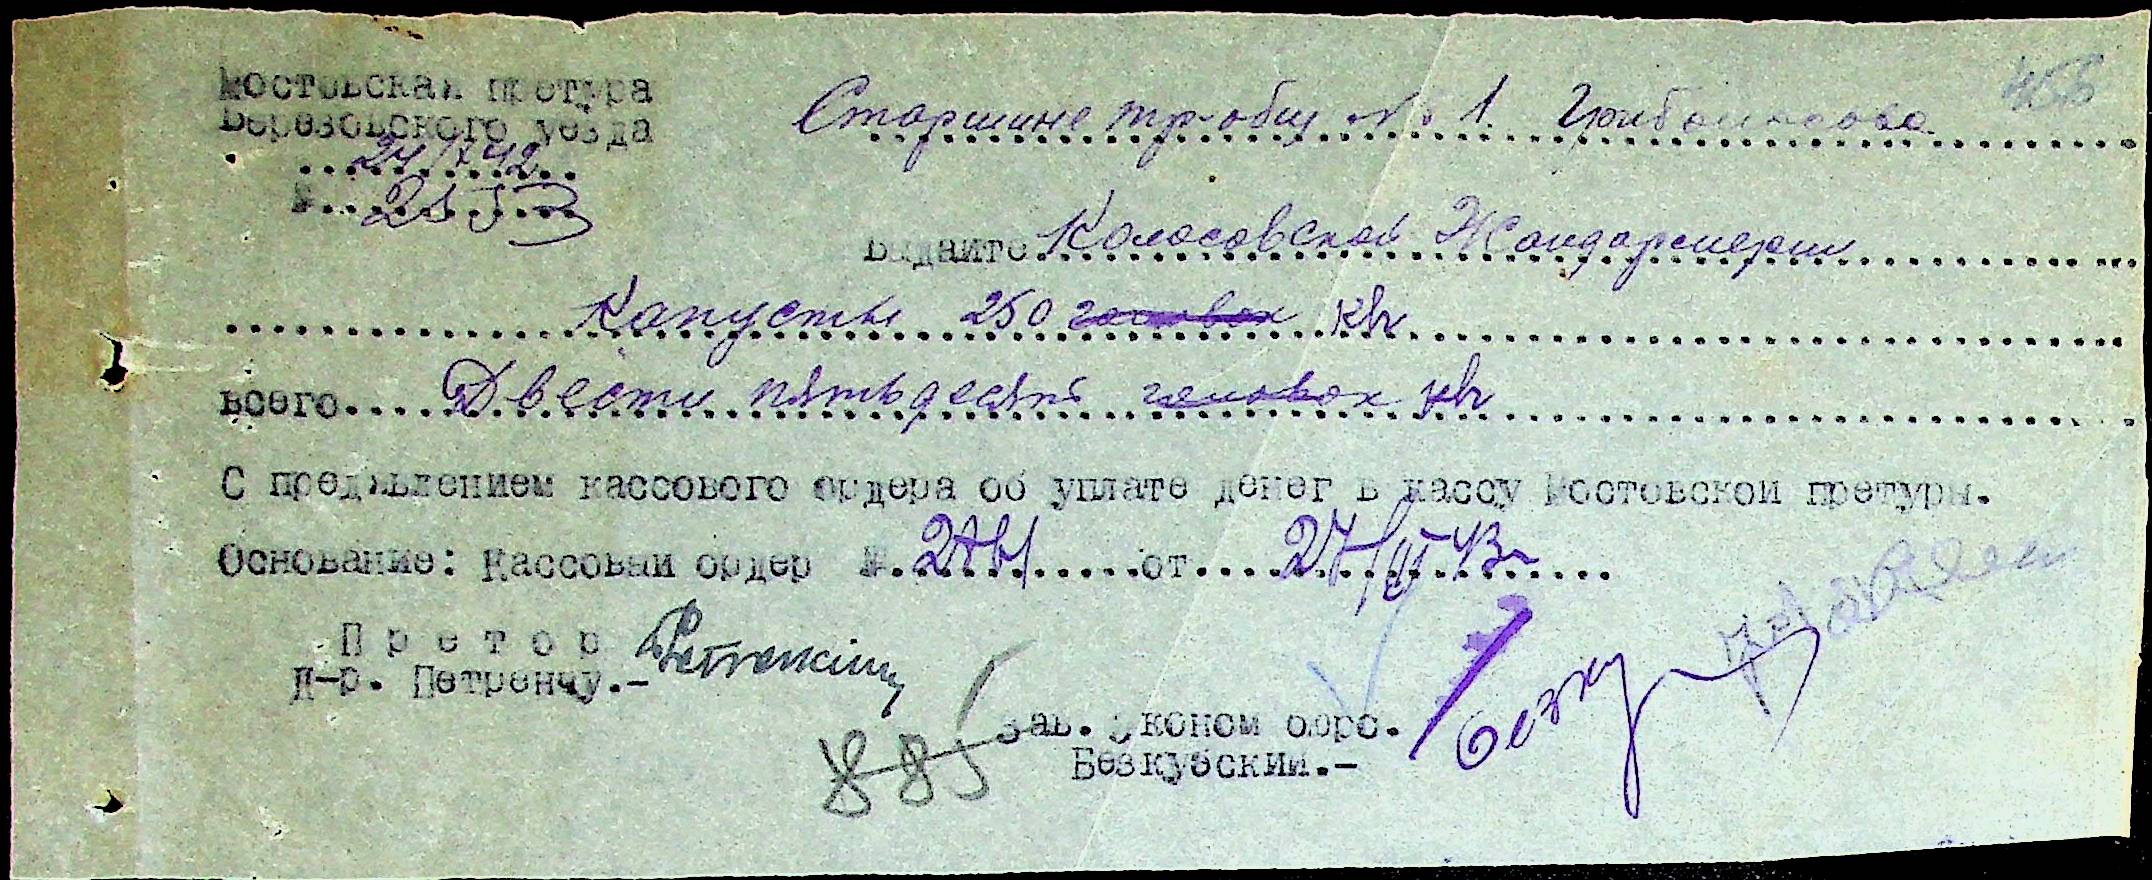 Мостовская претура
Березовского уезда
№ 2553
Старшине тр-общ № 1
Выдайте Колосовской Жандармерии
Капусты 250 головок кгр
всего Двести пятьдесят головок кгр
С предъявлением кассового ордера об уплате денег в кассу Мостовской претуры.
Основание: Кассовый ордер № от 27/
Претор
Д-р. Петренчу.-
885
Зав. Эконом бюро.
Безкубский.-